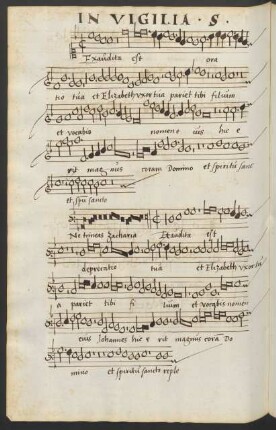 IN VIGILIA · S ·
Exaudita est ora
tio tua et Elizabeth vxor tua pariet tibi filium
et vocabis nomen e ius hic e
rit mag nus coram Domino et spiritu sanc
et spũ sancto
Ne timeas Zacharia Exaudita est
deprecatio tua et Elizabeth vxor tu
a pariet tibi fi lium et vocabis nomen
eius Johannes hic e rit magnus corã Do
mino et spiritu sancto reple